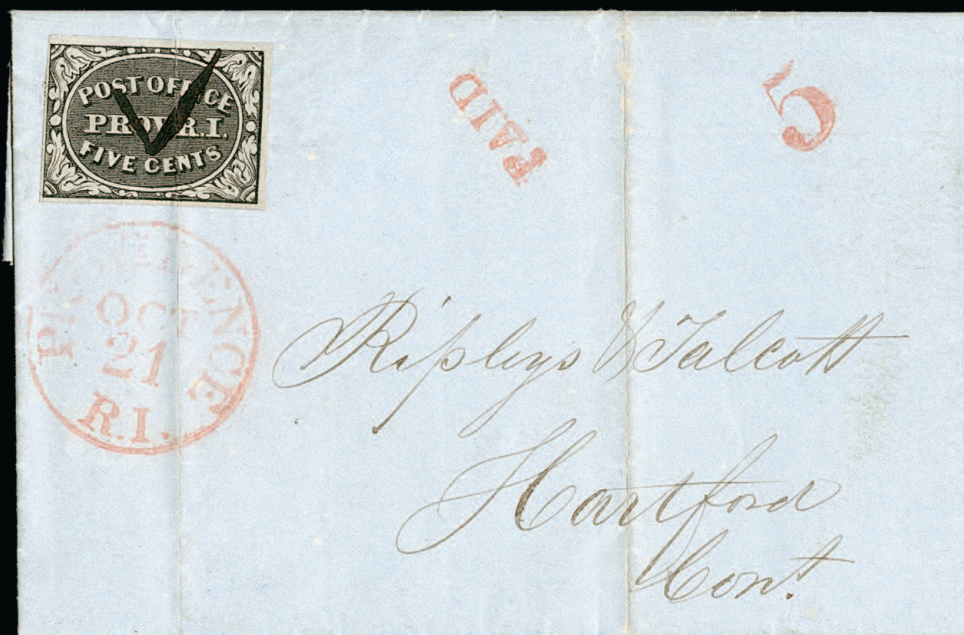 POST OFFICE
PROV. R.I.
FIVE CENTS
PAID
5
PROVIDENCE
OCT
21
R.I.
Ripleys & Talcott
Hartford
Cont.